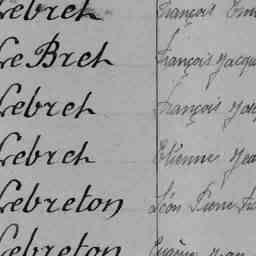 Lebret François
Le Bret François Jacqu
Lebret François Jacq
Lebret Etienne Jea
Lebreton Léon Pierre
Lebreton